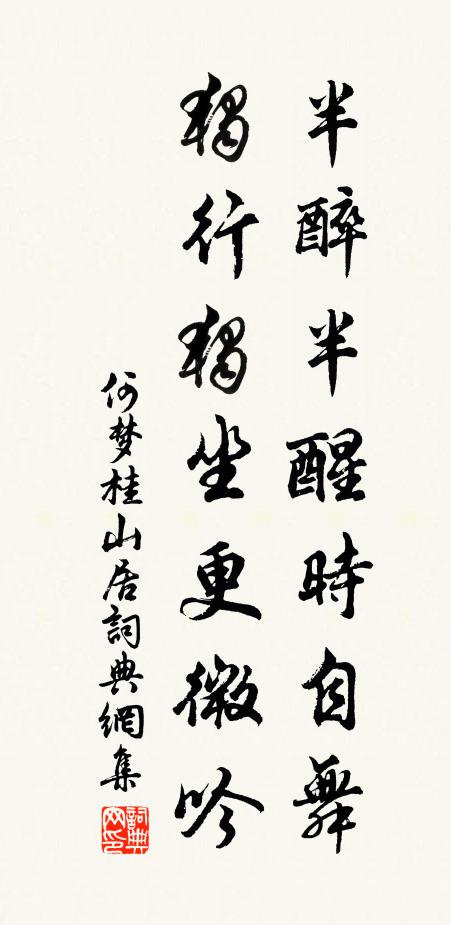 半醉半醒時自舞
獨行獨坐更微吟
何梦桂山居詞典網集
詞典网印